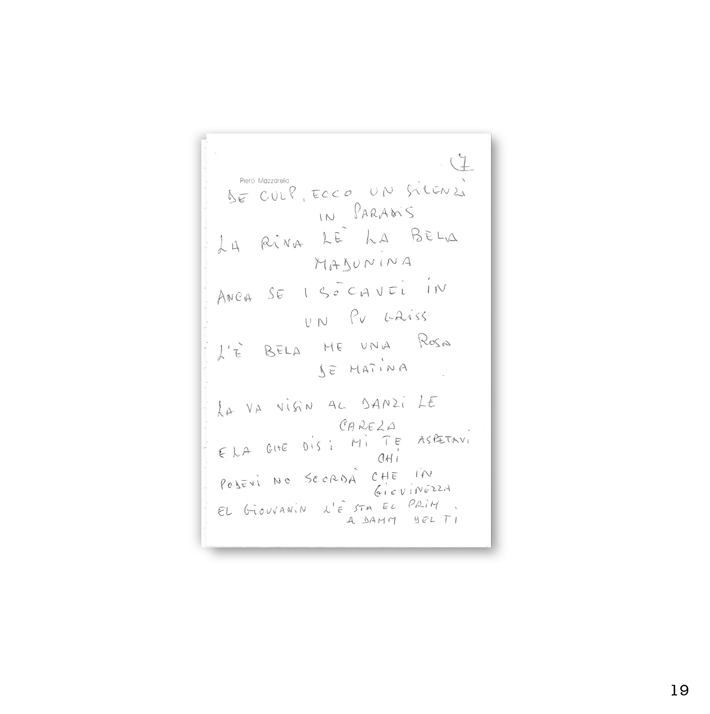 7
Piero Mazzarella
DE CULP, ECCO UN SILENZI
IN PARADIS
LA RIVA LÈ LA BELA
MADUNINA
ANCA SE I SÔ CAVEI IN
UN PU GRISS
L'È BELA ME UNA ROSA
DE MATINA
LA VA VISIN AL DANZI LE
CAREZA
E LA GHE DIS: MI TE ASPETAVI
CHÌ
PODEVI NO SCORDÀ CHE IN
GIOVINEZZA
EL GIOUVANIN L'È STA EL PRIM
A DAMM DEL TI
19